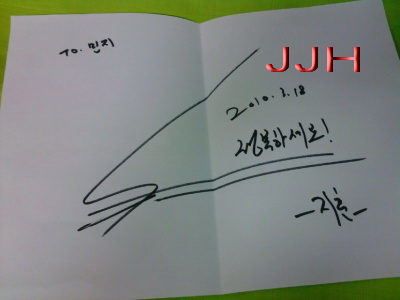 To. 민지
JJH
2010.3.18
행복하세요!
-지훈-